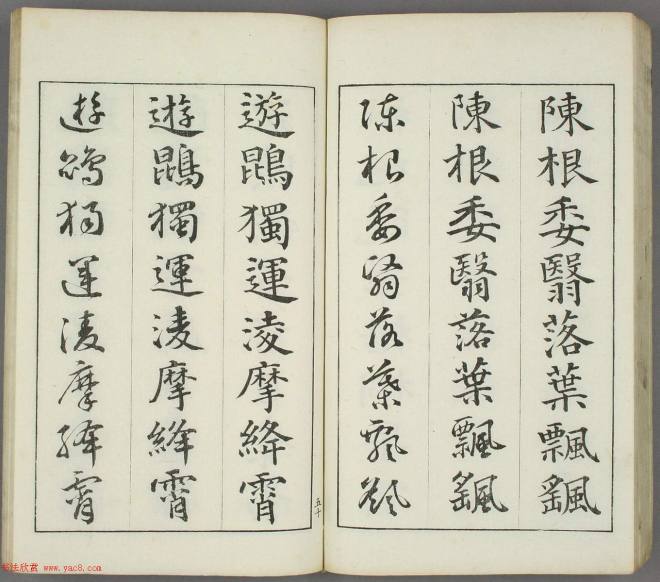 陳根委翳落葉飄颻
陳根委翳落葉飄颻
陳根委翳落葉飄颻
五十
遊鵾獨運淩摩絳霄
遊鵾獨運淩摩絳霄
遊鵾獨運淩摩絳霄
书法欣赏 www.yac8.com